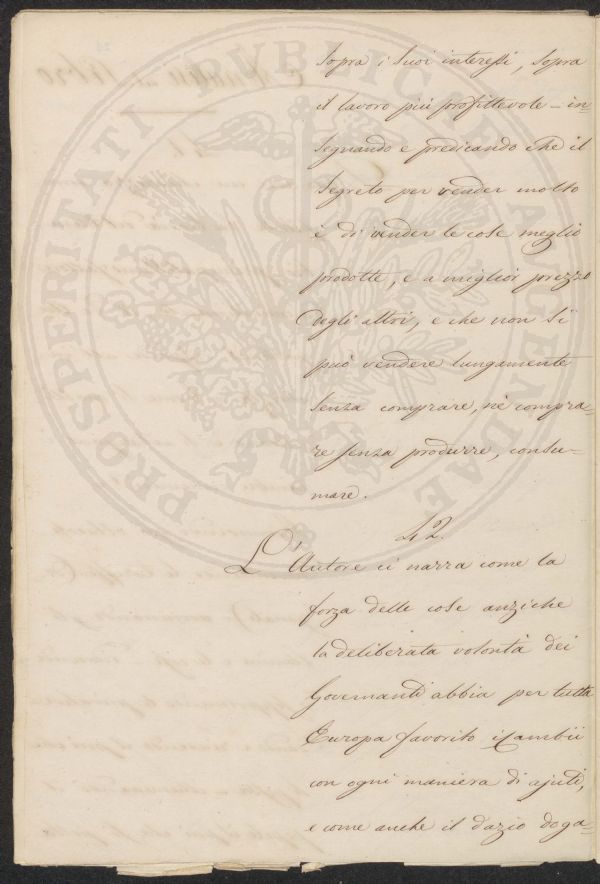 sopra i suoi interessi, sopra
il lavoro più profittevole – in=
segnando e predicando che il
segreto per vender molto
è di vender le cose meglio
prodotte, e a miglior prezzo
degli altri, e che non si
può vendere lungamente
senza comprare, nè compra=
re senza produrre, consu=
mare.
42.
L'Autore ci narra come la
forza delle cose anziche
la deliberata volontà dei
Governanti abbia per tutta
Europa favorito i Cambii
con ogni maniera di ajuti,
e come anche il dazio doga=
PROSPERITATI PUBLICAE AUGENDAE